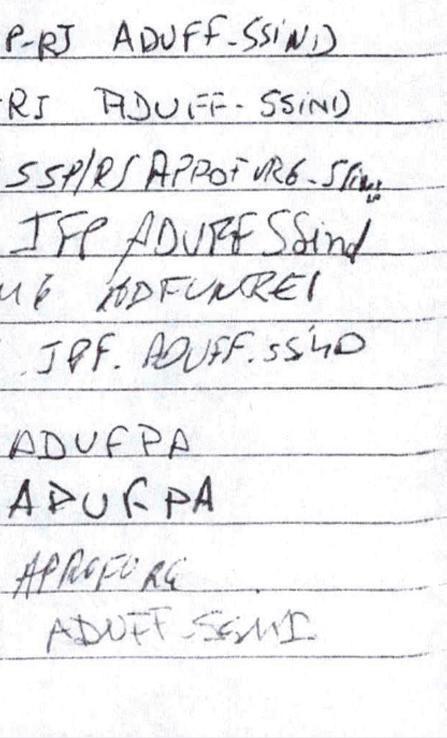 P-RJ ADUFF-SSIND
RJ ADUFF-SSIND
SSP/RS APROFURG-SSind
IFP ADUFF SSind
MG ADFUNREI
IPF. ADUFF.SSIND
ADUFPA
ADUFPA
APROFURG
ADUFF-SSIND